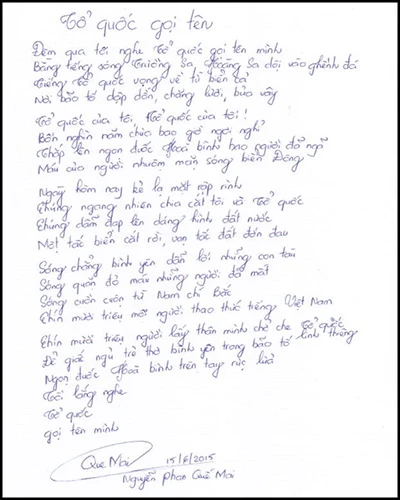 Tổ quốc gọi tên
Đêm qua tôi nghe Tổ quốc gọi tên mình
Bằng tiếng sóng Trường Sa, Hoàng Sa dội vào ghềnh đá
Tiếng Tổ quốc vọng về từ biển cả
Nơi bão tố dập dồn, chăng lưới, bủa vây
Tổ quốc của tôi, Tổ quốc của tôi!
Bốn nghìn năm chưa bao giờ ngơi nghỉ
Thắp lên ngọn đuốc Hoà bình bao người đã ngã
Máu của người nhuộm mặn sóng biển Đông
Ngày hôm nay kẻ lạ mặt rập rình
Chúng ngang nhiên chia cắt tôi và Tổ quốc
Chúng dẫm đạp lên dáng hình đất nước
Một tấc biển cắt rời, vạn tấc đất đớn đau
Sóng chẳng bình yên dẫn lối những con tàu
Sóng quặn đỏ máu những người đã mất
Sóng cuồn cuộn từ Nam chí Bắc
Chín mươi triệu môi người thao thức tiếng Việt Nam
Chín mươi triệu người lấy thân mình chở che Tổ quốc
Để giấc ngủ trẻ thơ bình yên trong bão tố linh thiêng
Ngọn đuốc Hoà bình trên tay rực lửa
Tôi lắng nghe
Tổ quốc
gọi tên mình
Quế Mai 15/6/2015
Nguyễn Phan Quế Mai